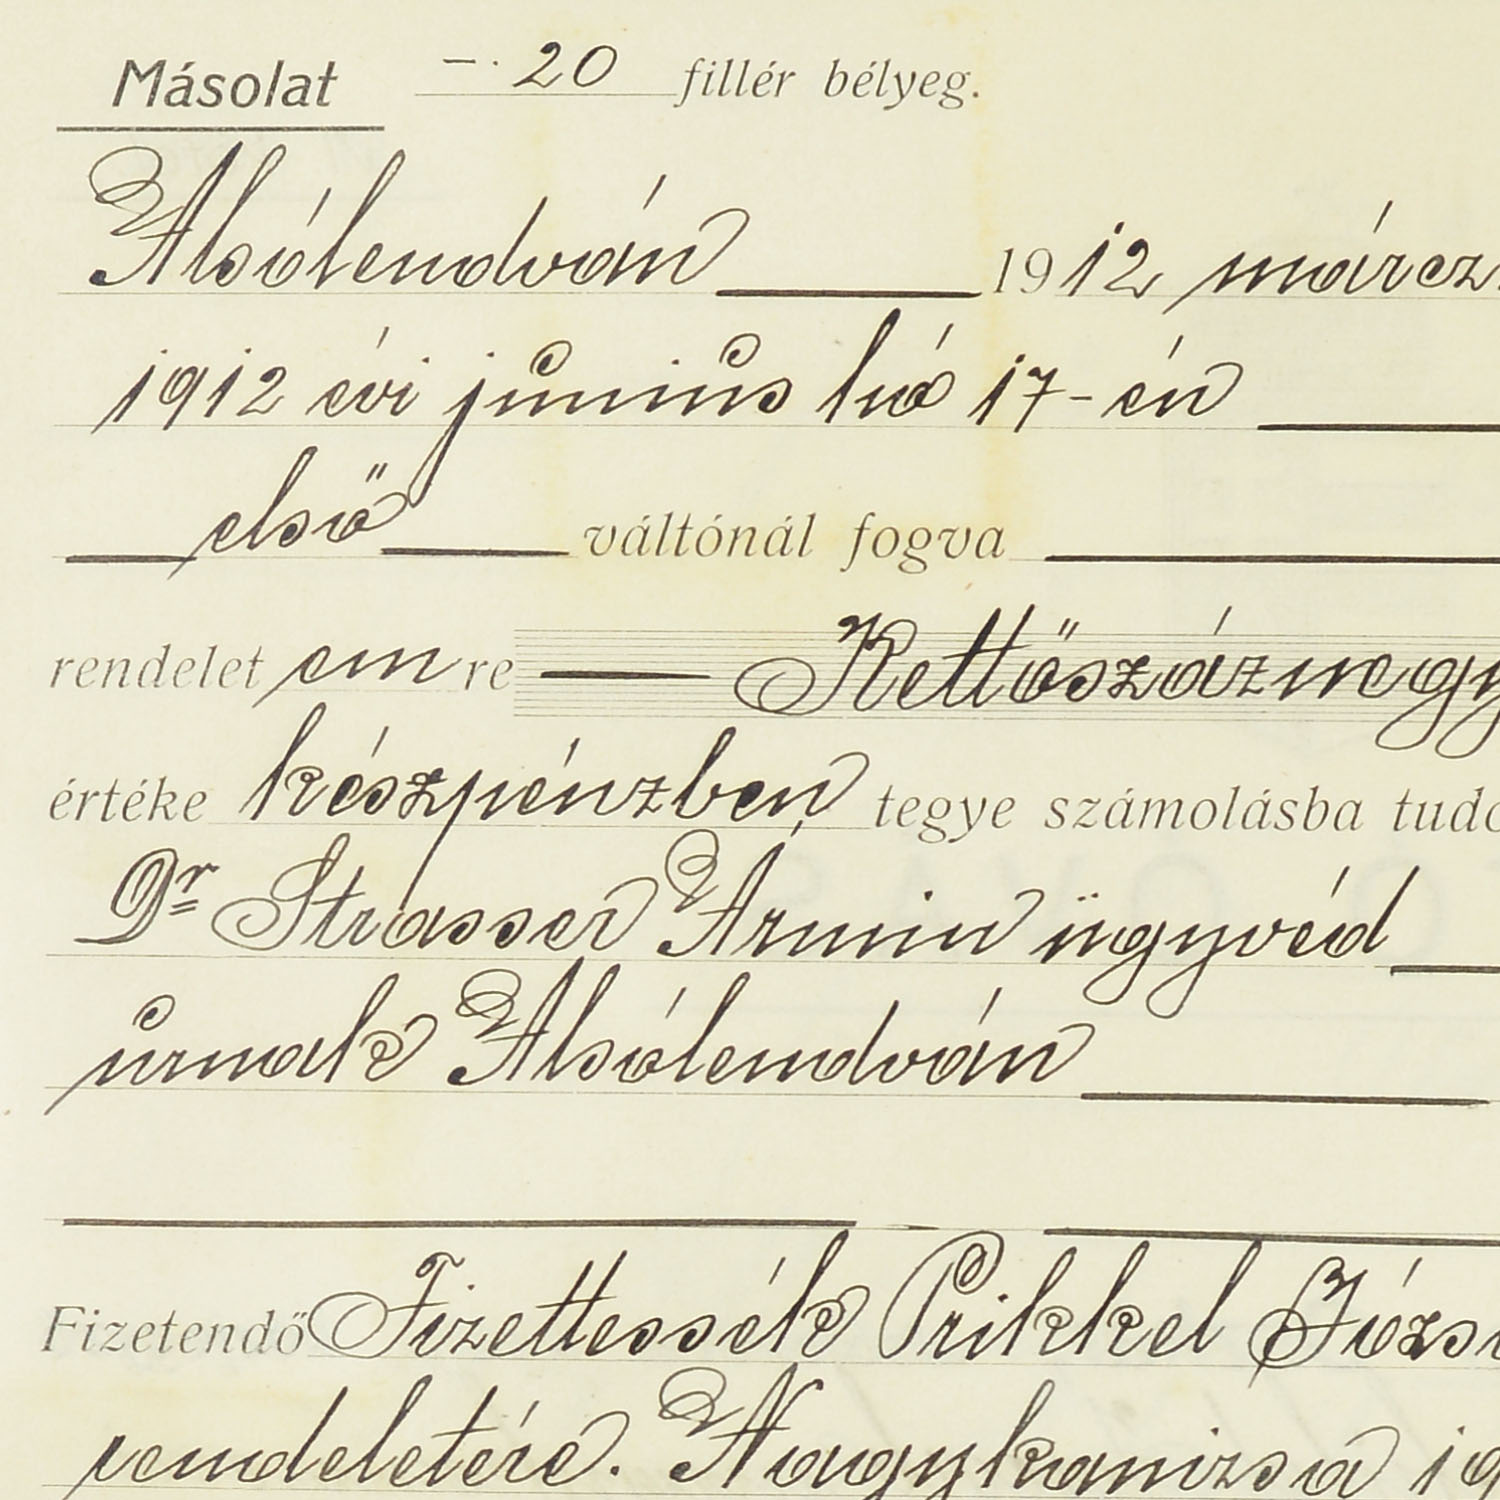 Másolat —. 20 fillér bélyeg.
Alsólendván 1912 márcz
1912 évi június hó 17-én
első váltónál fogva
rendelet em re Kettőszáznegy
értéke készpénzben tegye számolásba tudó
Dr Strasser Ármin ügyvéd
úrnak Alsólendván
Fizetendő Fizettessék Prikkel Józs
rendeletére. Nagykanizsa 19